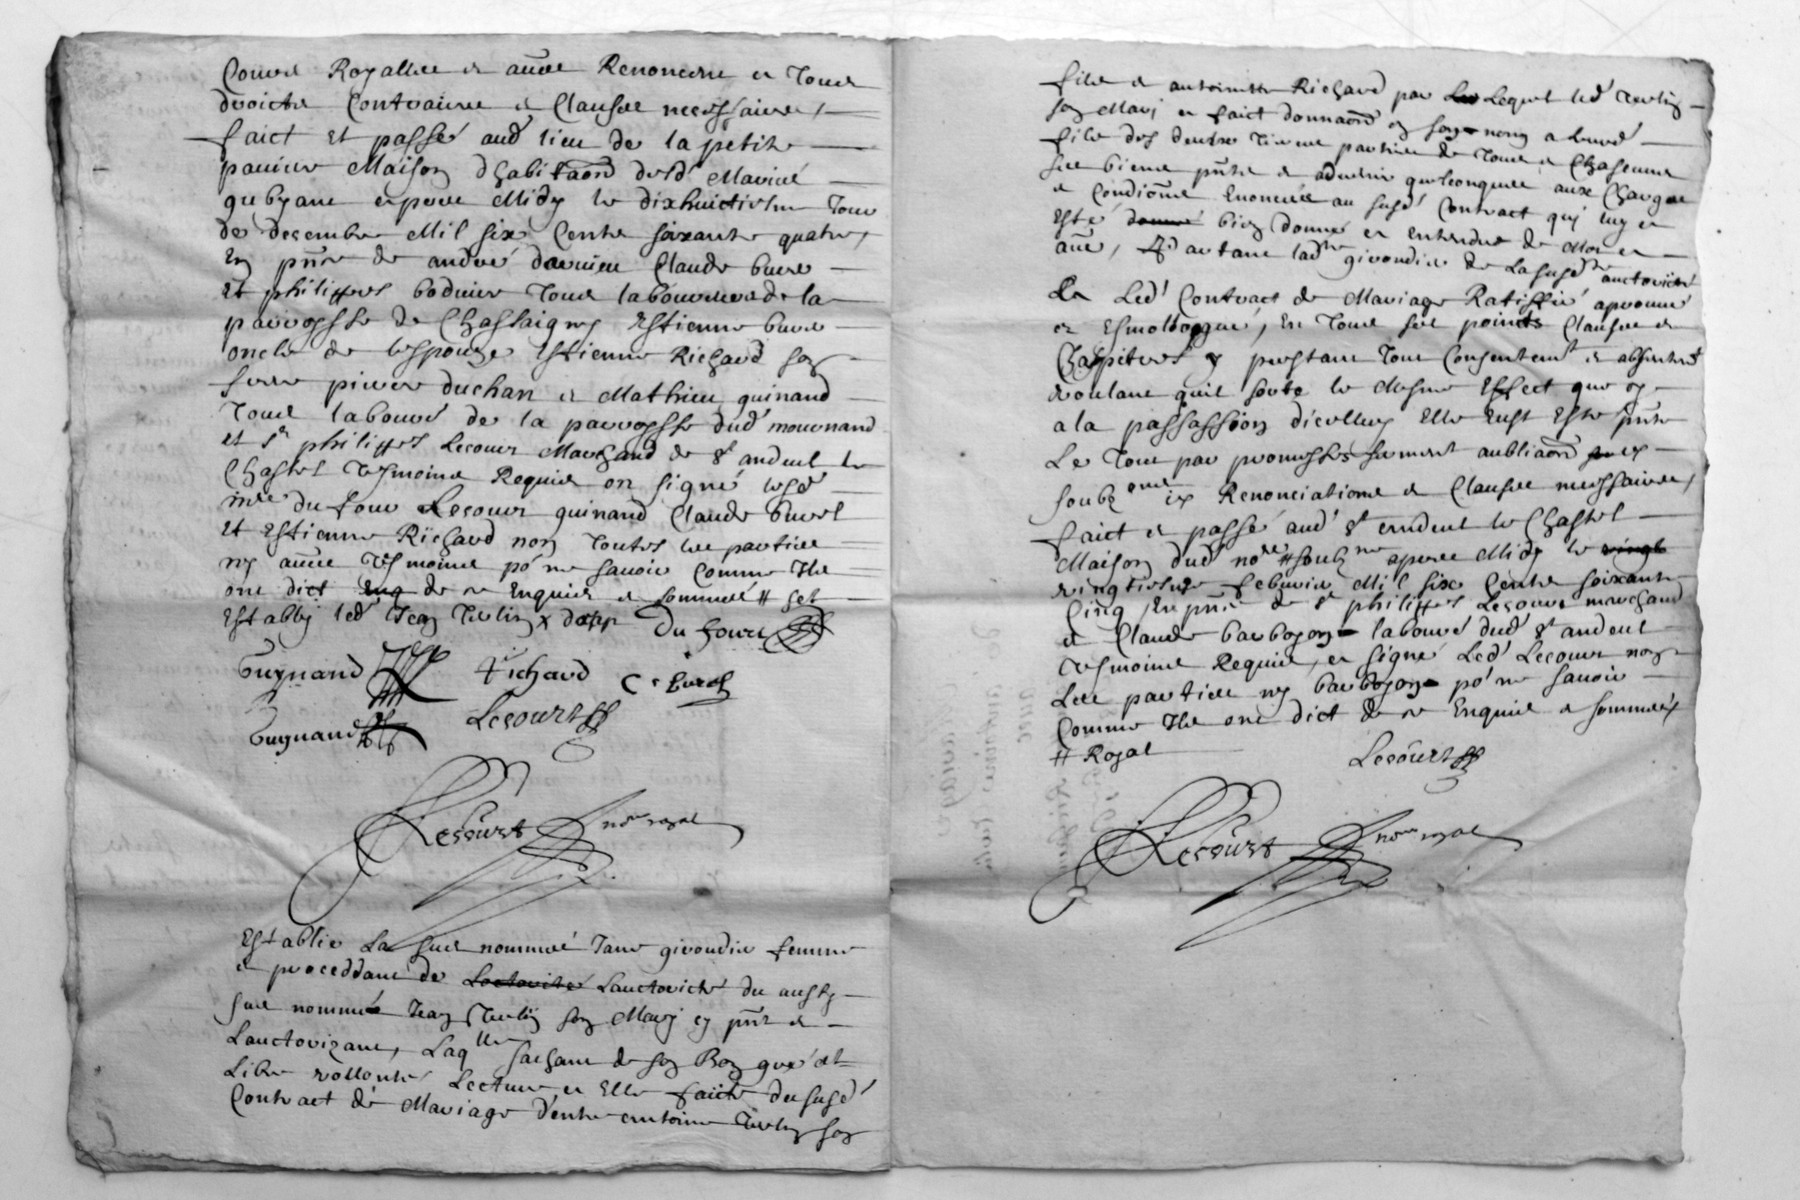 Cours Royalles et aues Renoncons et Tous
droictz Contraires et Clauses necessaires,
faict et passé aud lieu de la petite
pauiere Maison dhabitaon desd Mariés
quoyant apres Midy le dixhuictiesme Jour
de decembre Mil six Centz soixante quatre,
En pnce de andré dournieu Claude burel
et philippes bodnier Tous laboureurs de la
parroysse de Chassaigny Estienne burel
oncle de lespouze Estienne Richard son
frere pierre duchan et Mathieu guinand
Tous labours de la parroysse dud mournand
et Sr philippes Lecourt Marchand de St andeul le
Chastel Tesmoins Requis on signé lesd
mre du four Lecourt guinand Claude burel
et Estienne Richard non Toutes les parties
ny aues Tesmoins po ne sauoir Comme Ilz
ont dict de ce Enquis et sommés # set
Establi led Jean Terlin x Du four
Guynand Richard C burel
Guynand Lecourt
Lecourt nore royal
Establie La sus nommée Jane girondie femme
et proceddant de Lauctorité Lauctorité du aussy
sus nommé Jean Terlin son Mary en pnt et
Lauctorizant, Laqlle sachant de son Bon gré et
Libre vollonté Lecture a Elle faicte du susd
Contract de Mariage d'entre antoine Terlin son
filz et antoinette Richard par Lequel led Terlin
son Mary a faict donnaon en son nom a sond
filz des deux Tierces parties de Tous et Chascuns
ses biens pntz et aduenir quelconques aux Charges
et Condions Enoncées au susd Contract quj luy a
Esté donné bien donné a Entendre de Mot a
aue, Et d'autant lad girondie de La susd auctorité
Led Contract de Mariage Ratiffié aprouué
et Esmologgué, En Tous ses points Clauses et
Chappitres y prestant Tout Consentemt et
voulant quil sorte le Mesme Effect que sy
a la passassion dicelluy Elle Eust Esté pnte
Le Tout par promesses serment aubliaon
soubzons Renonciations et Clauses necessaires,
faict et passé aud St andeul le Chastel
Maison dud nore # soubz ne apres Midy le vingt
vingtiesme febvrier Mil six Centz soixante
Cinq En pnce de Sr philippes Lecourt marchand
et Claude barboyon labour dud St andeul
Tesmoins Requis, et signé Led Lecourt non
Les parties ny barboyon po ne sauoir
Comme Ilz ont dict de ce Enquis et sommés
# Royal Lecourt
Lecourt nore royal